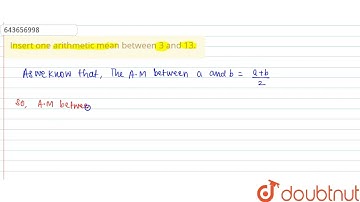 643656998
Insert one arithmetic mean between 3 and 13.
As we know that, The A.M between a and b = a+b/2
So, A.M between
doubtnut